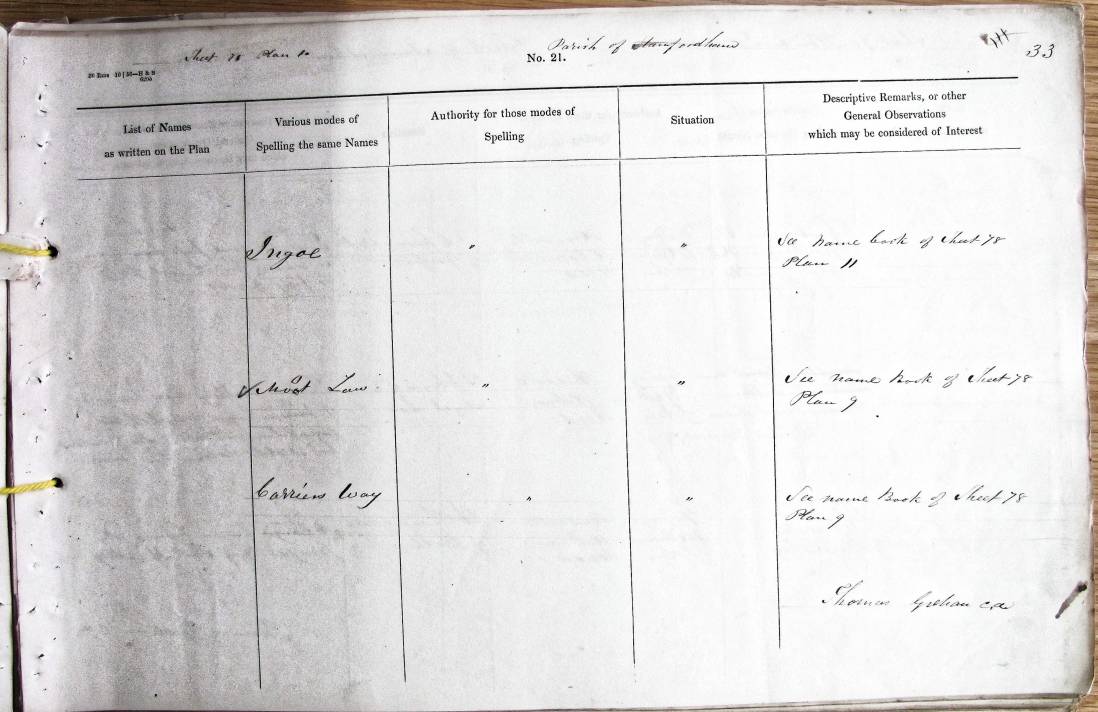 Sheet 78 Plan 10
Parish of Stamfordham
33
20 Rms 10 | 56—H & S
6205
No. 21.
List of Names
as written on the Plan
Various modes of
Spelling the same Names
Authority for those modes of
Spelling
Situation
Descriptive Remarks, or other
General Observations
which may be considered of Interest
Ingoe " " See name book of Sheet 78
Plan 11
Moot Law " " See name Book of Sheet 78
Plan 9
Carriers Way " " See name Book of Sheet 78
Plan 9
Thomas